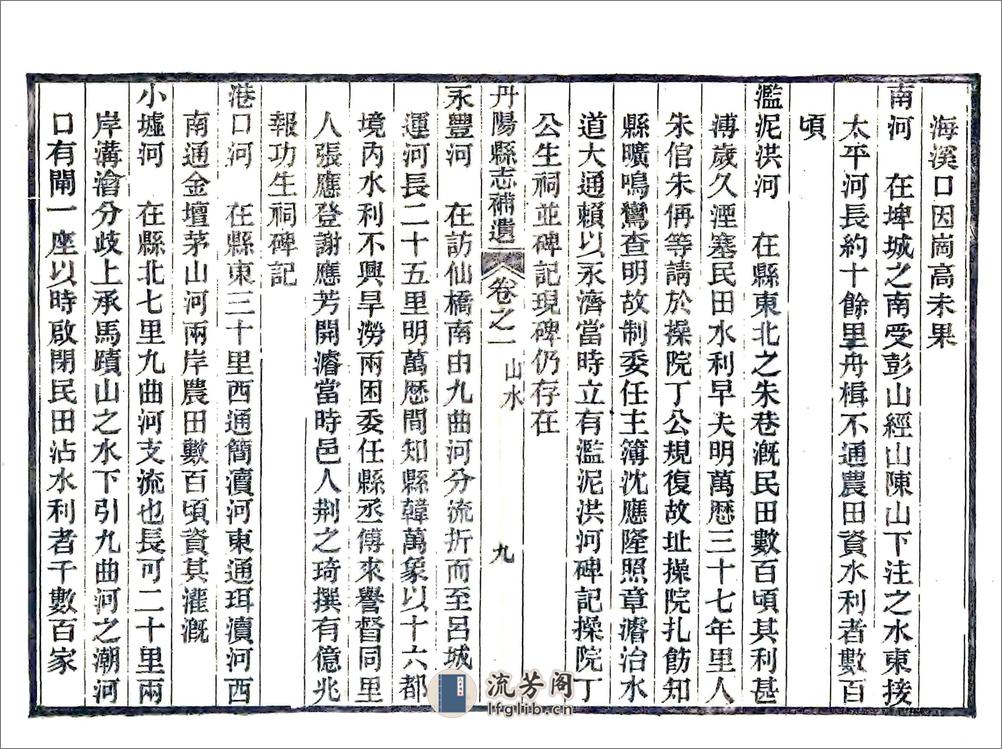 海溪口因崗高未果
南河　在埤城之南受彭山經山陳山下注之水東接
太平河長約十餘里舟楫不通農田資水利者數百
頃
濫泥洪河　在縣東北之朱巷漑民田數百頃其利甚
溥歲久湮塞民田水利早夫明萬歷三十七年里人
朱倌朱侢等請於操院丁公規復故址操院扎飭知
縣曠鳴鸞查明故制委任主簿沈應隆照章濬治水
道大通賴以永濟當時立有濫泥洪河碑記操院丁
公生祠並碑記現碑仍存在
丹陽縣志補遺　卷之一　山水　九
永豐河　在訪仙橋南由九曲河分流折而至呂城
運河長二十五里明萬歷間知縣韓萬象以十六都
境內水利不興旱澇兩困委任縣丞傅來譽督同里
人張應登謝應芳開濬當時邑人荆之琦撰有億兆
報功生祠碑記
港口河　在縣東三十里西通簡瀆河東通珥瀆河西
南通金壇茅山河兩岸農田數百頃資其灌漑
小墟河　在縣北七里九曲河支流也長可二十里兩
岸溝澮分歧上承馬蹟山之水下引九曲河之潮河
口有閘一座以時啟閉民田沾水利者千數百家
流芳阁
lfglib.cn